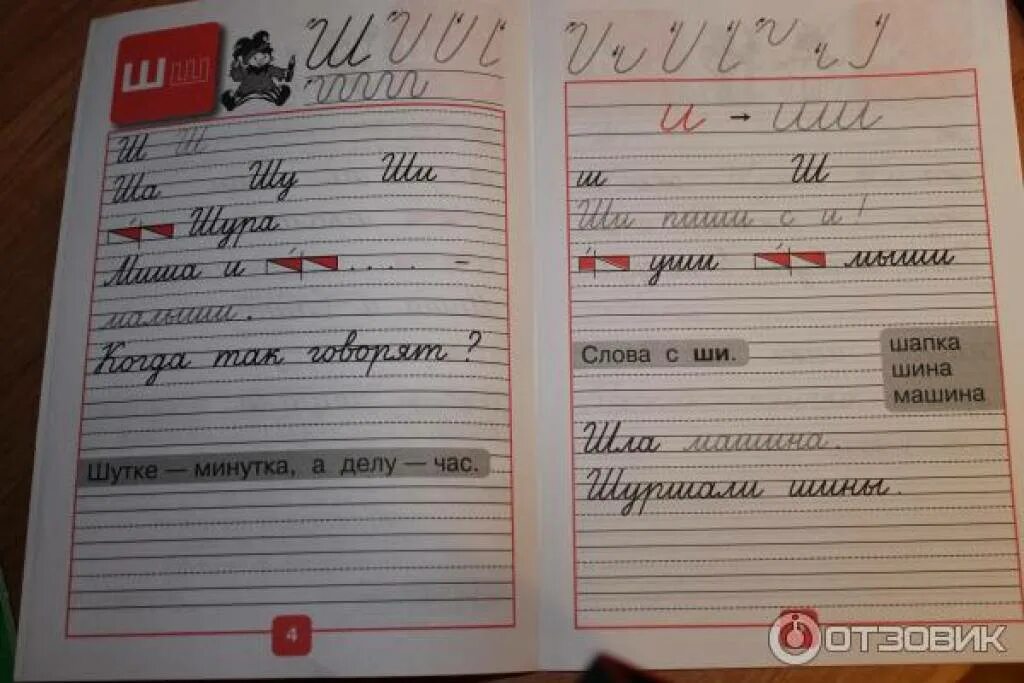 Ш ш
Ш
Ш Ш
Ша Шу Ши
Шура
Миша и . . . . –
малыши.
Когда так говорят?
Шутке — минутка, а делу — час.
4
и → ши
ш Ш
Ши пиши с и!
уши мыши
Слова с ши.
шапка
шина
машина
Шла машина.
Шуршали шины.
ОТЗОВИК